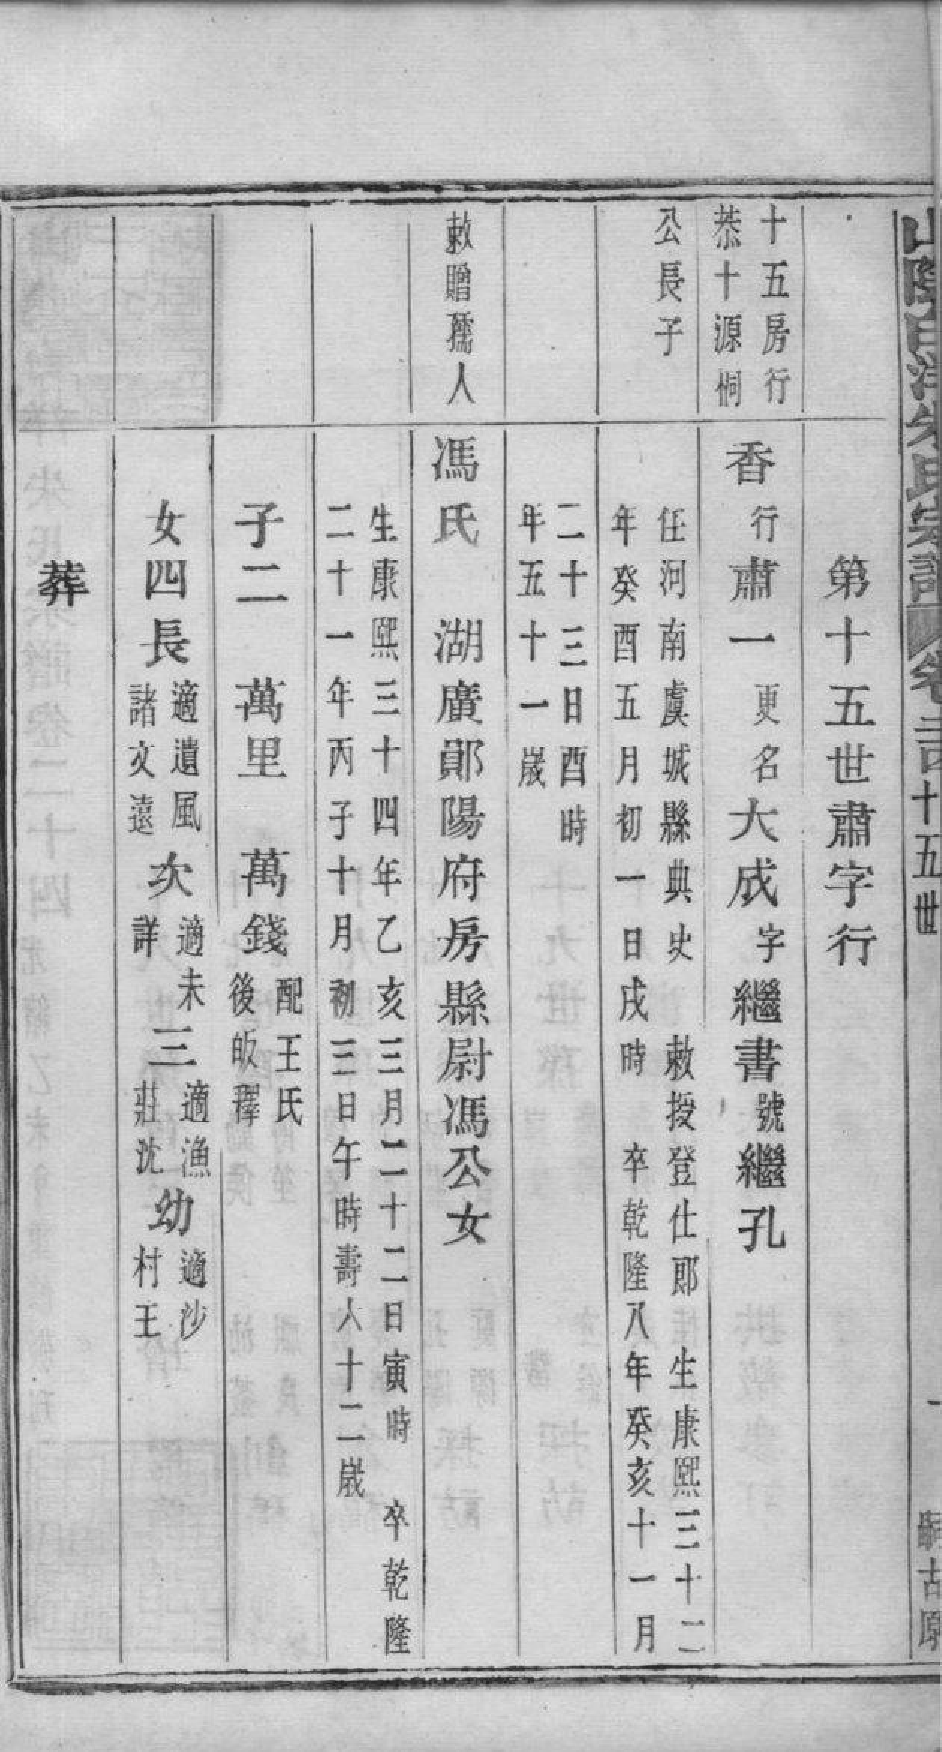 山陰白洋朱氏宗譜 卷二十四 十五世
第十五世肅字行
十五房行
恭十源炯
公長子
香行肅一更名大成字繼書號繼孔
任河南虞城縣典史 敕授登仕郎 生康熙三十二
年癸酉五月初一日戌時 卒乾隆八年癸亥十一月
二十三日酉時
年五十一歲
敕贈孺人
馮氏 湖廣鄖陽府房縣尉馮公女
生康熙三十四年乙亥三月二十二日寅時 卒乾隆
二十一年丙子十月初三日午時壽八十二歲
子二 萬里 萬錢配王氏
後皈釋
女四長適遺風
諸文遠
次適未
詳
三適漁
莊沈
幼適沙
村王
葬